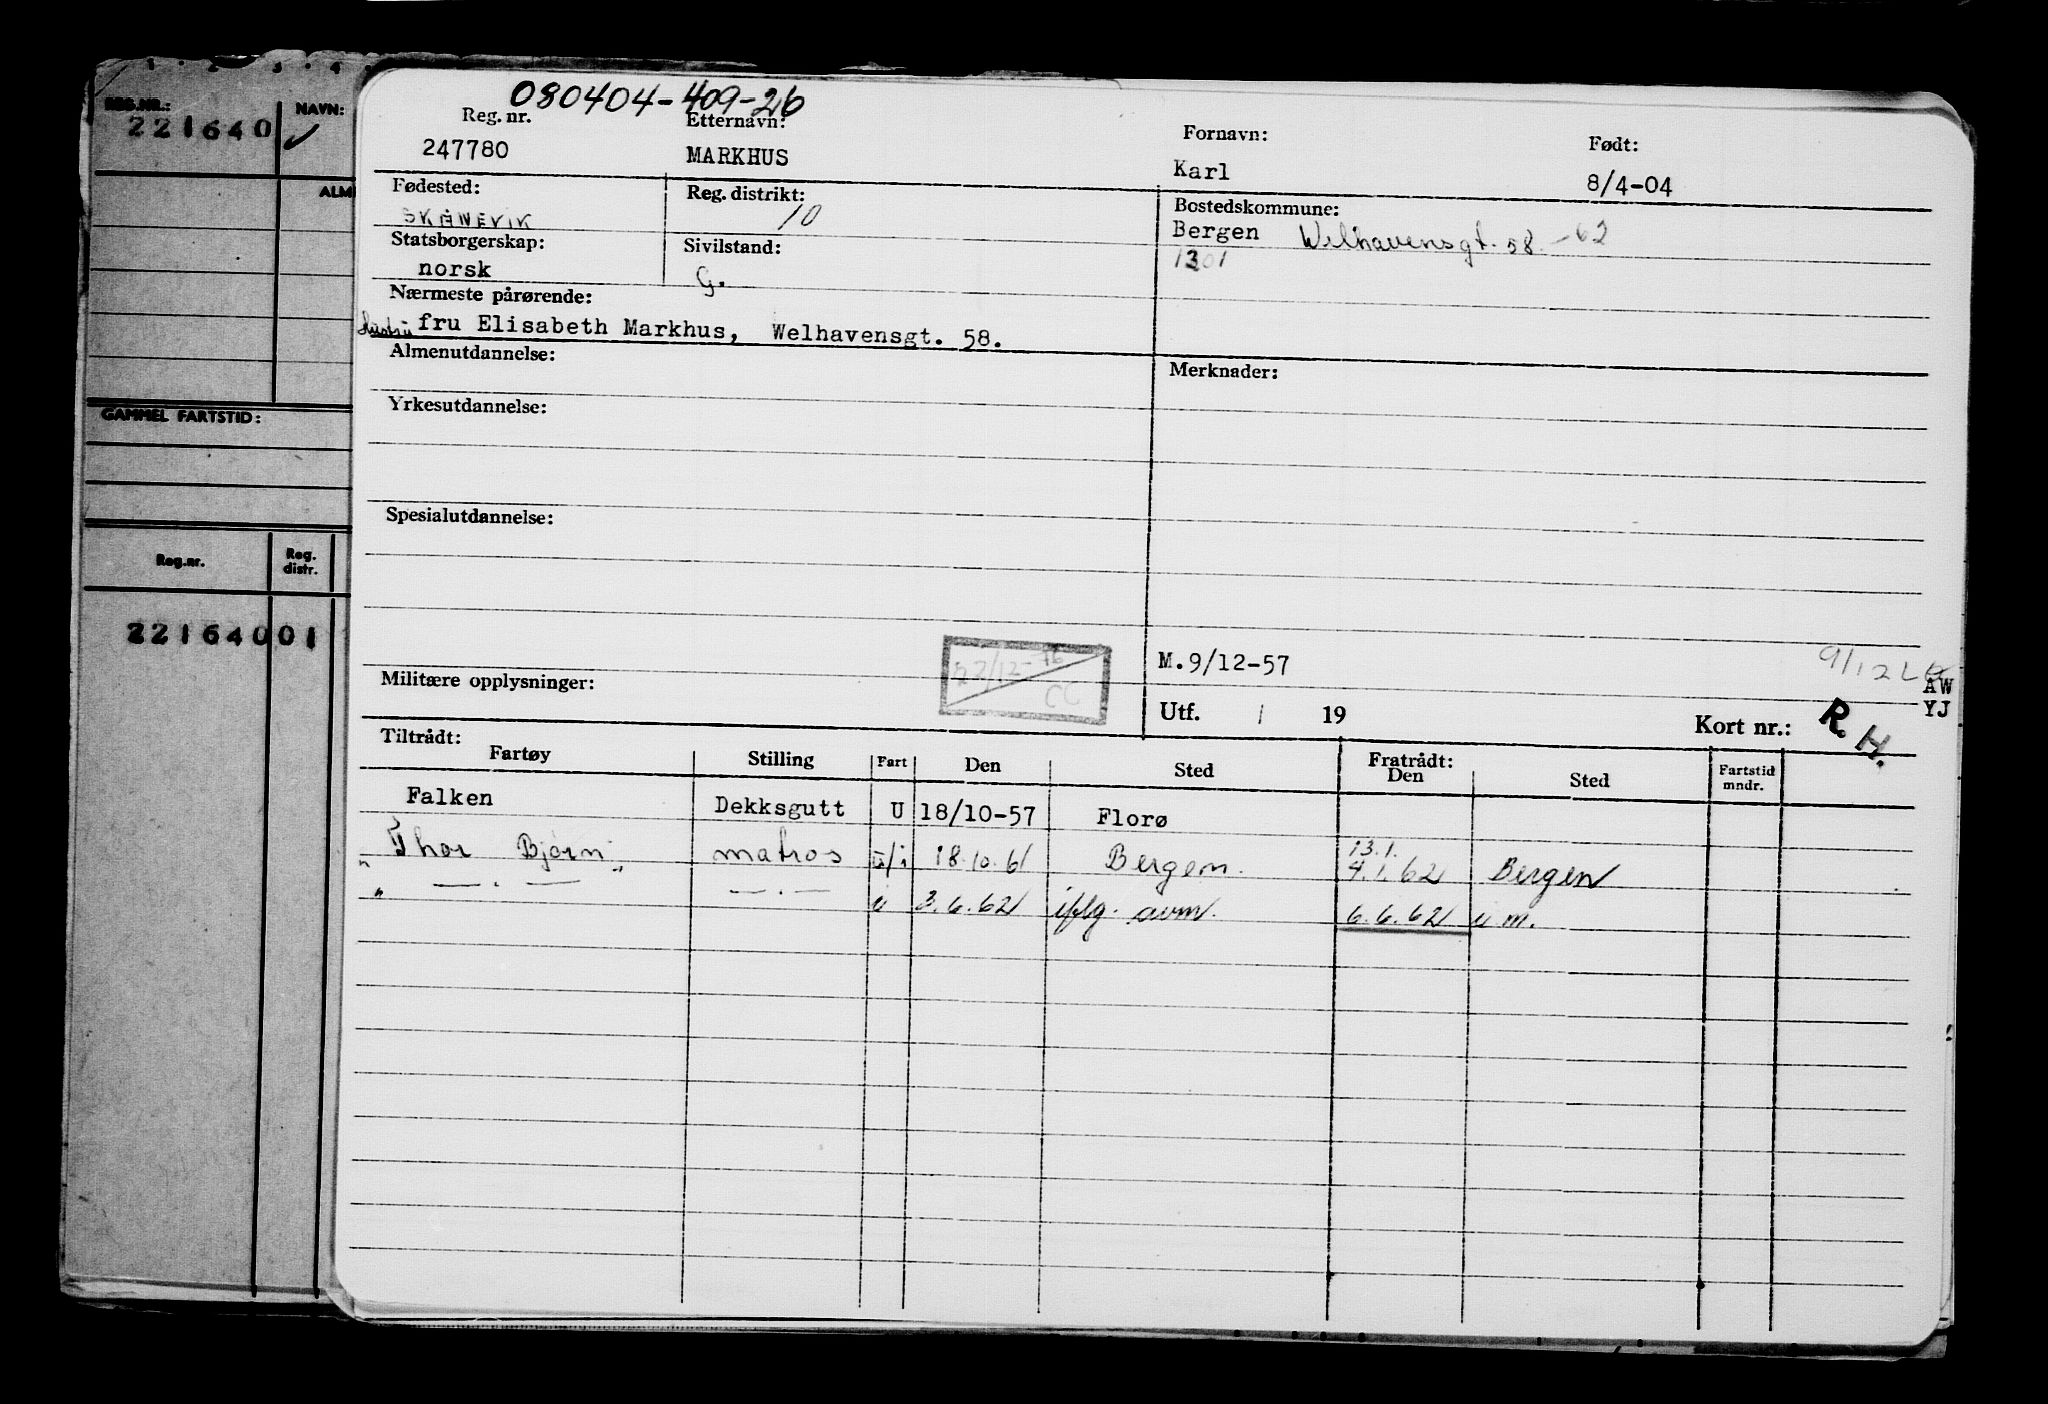 1 2 3 4
REG.NR.: NAVN:
221640 ✓
ALM
GAMMEL FARTSTID:
Reg.nr. Reg. distr.
22164001
080404-409-26
Reg. nr. Etternavn: Fornavn: Født:
247780 MARKHUS Karl 8/4-04
Fødested: Reg. distrikt: Bostedskommune:
SKÅNEVIK 10 Bergen Welhavensgt. 58 -62
Statsborgerskap: Sivilstand: 1301
norsk G.
Nærmeste pårørende:
hustru fru Elisabeth Markhus, Welhavensgt. 58.
Almenutdannelse: Merknader:
Yrkesutdannelse:
Spesialutdannelse:
22/12-76 CC
M.9/12-57 9/12
Militære opplysninger: AW
Utf. / 19 Kort nr.: R. H. YJ
Tiltrådt: Fratrådt:
Fartøy Stilling Fart Den Sted Den Sted Fartstid mndr.
Falken Dekksgutt U 18/10-57 Florø
13.1.
"Thor Bjørn" matros u/i 18.10.61 Bergen. 4.1.62 Bergen
" — . — — . — u 3.6.62 iflg. avm. 6.6.62 u m.